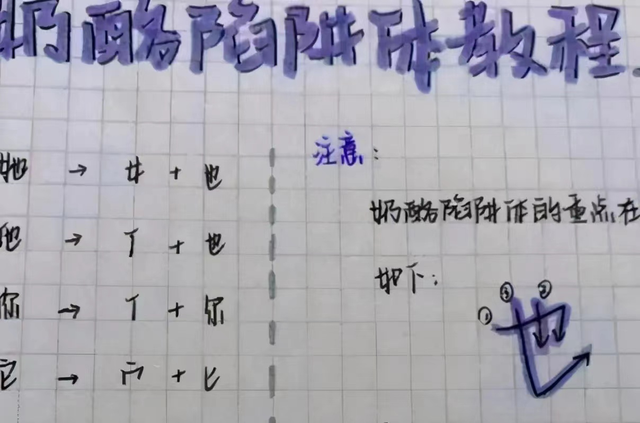 奶酪陷阱体教程
她 → 女 + 也
他 → 亻 + 也
你 → 亻 + 尔
它 → 宀 + 匕
注意：
奶酪陷阱体的重点在
如下：
① ③ ②
也